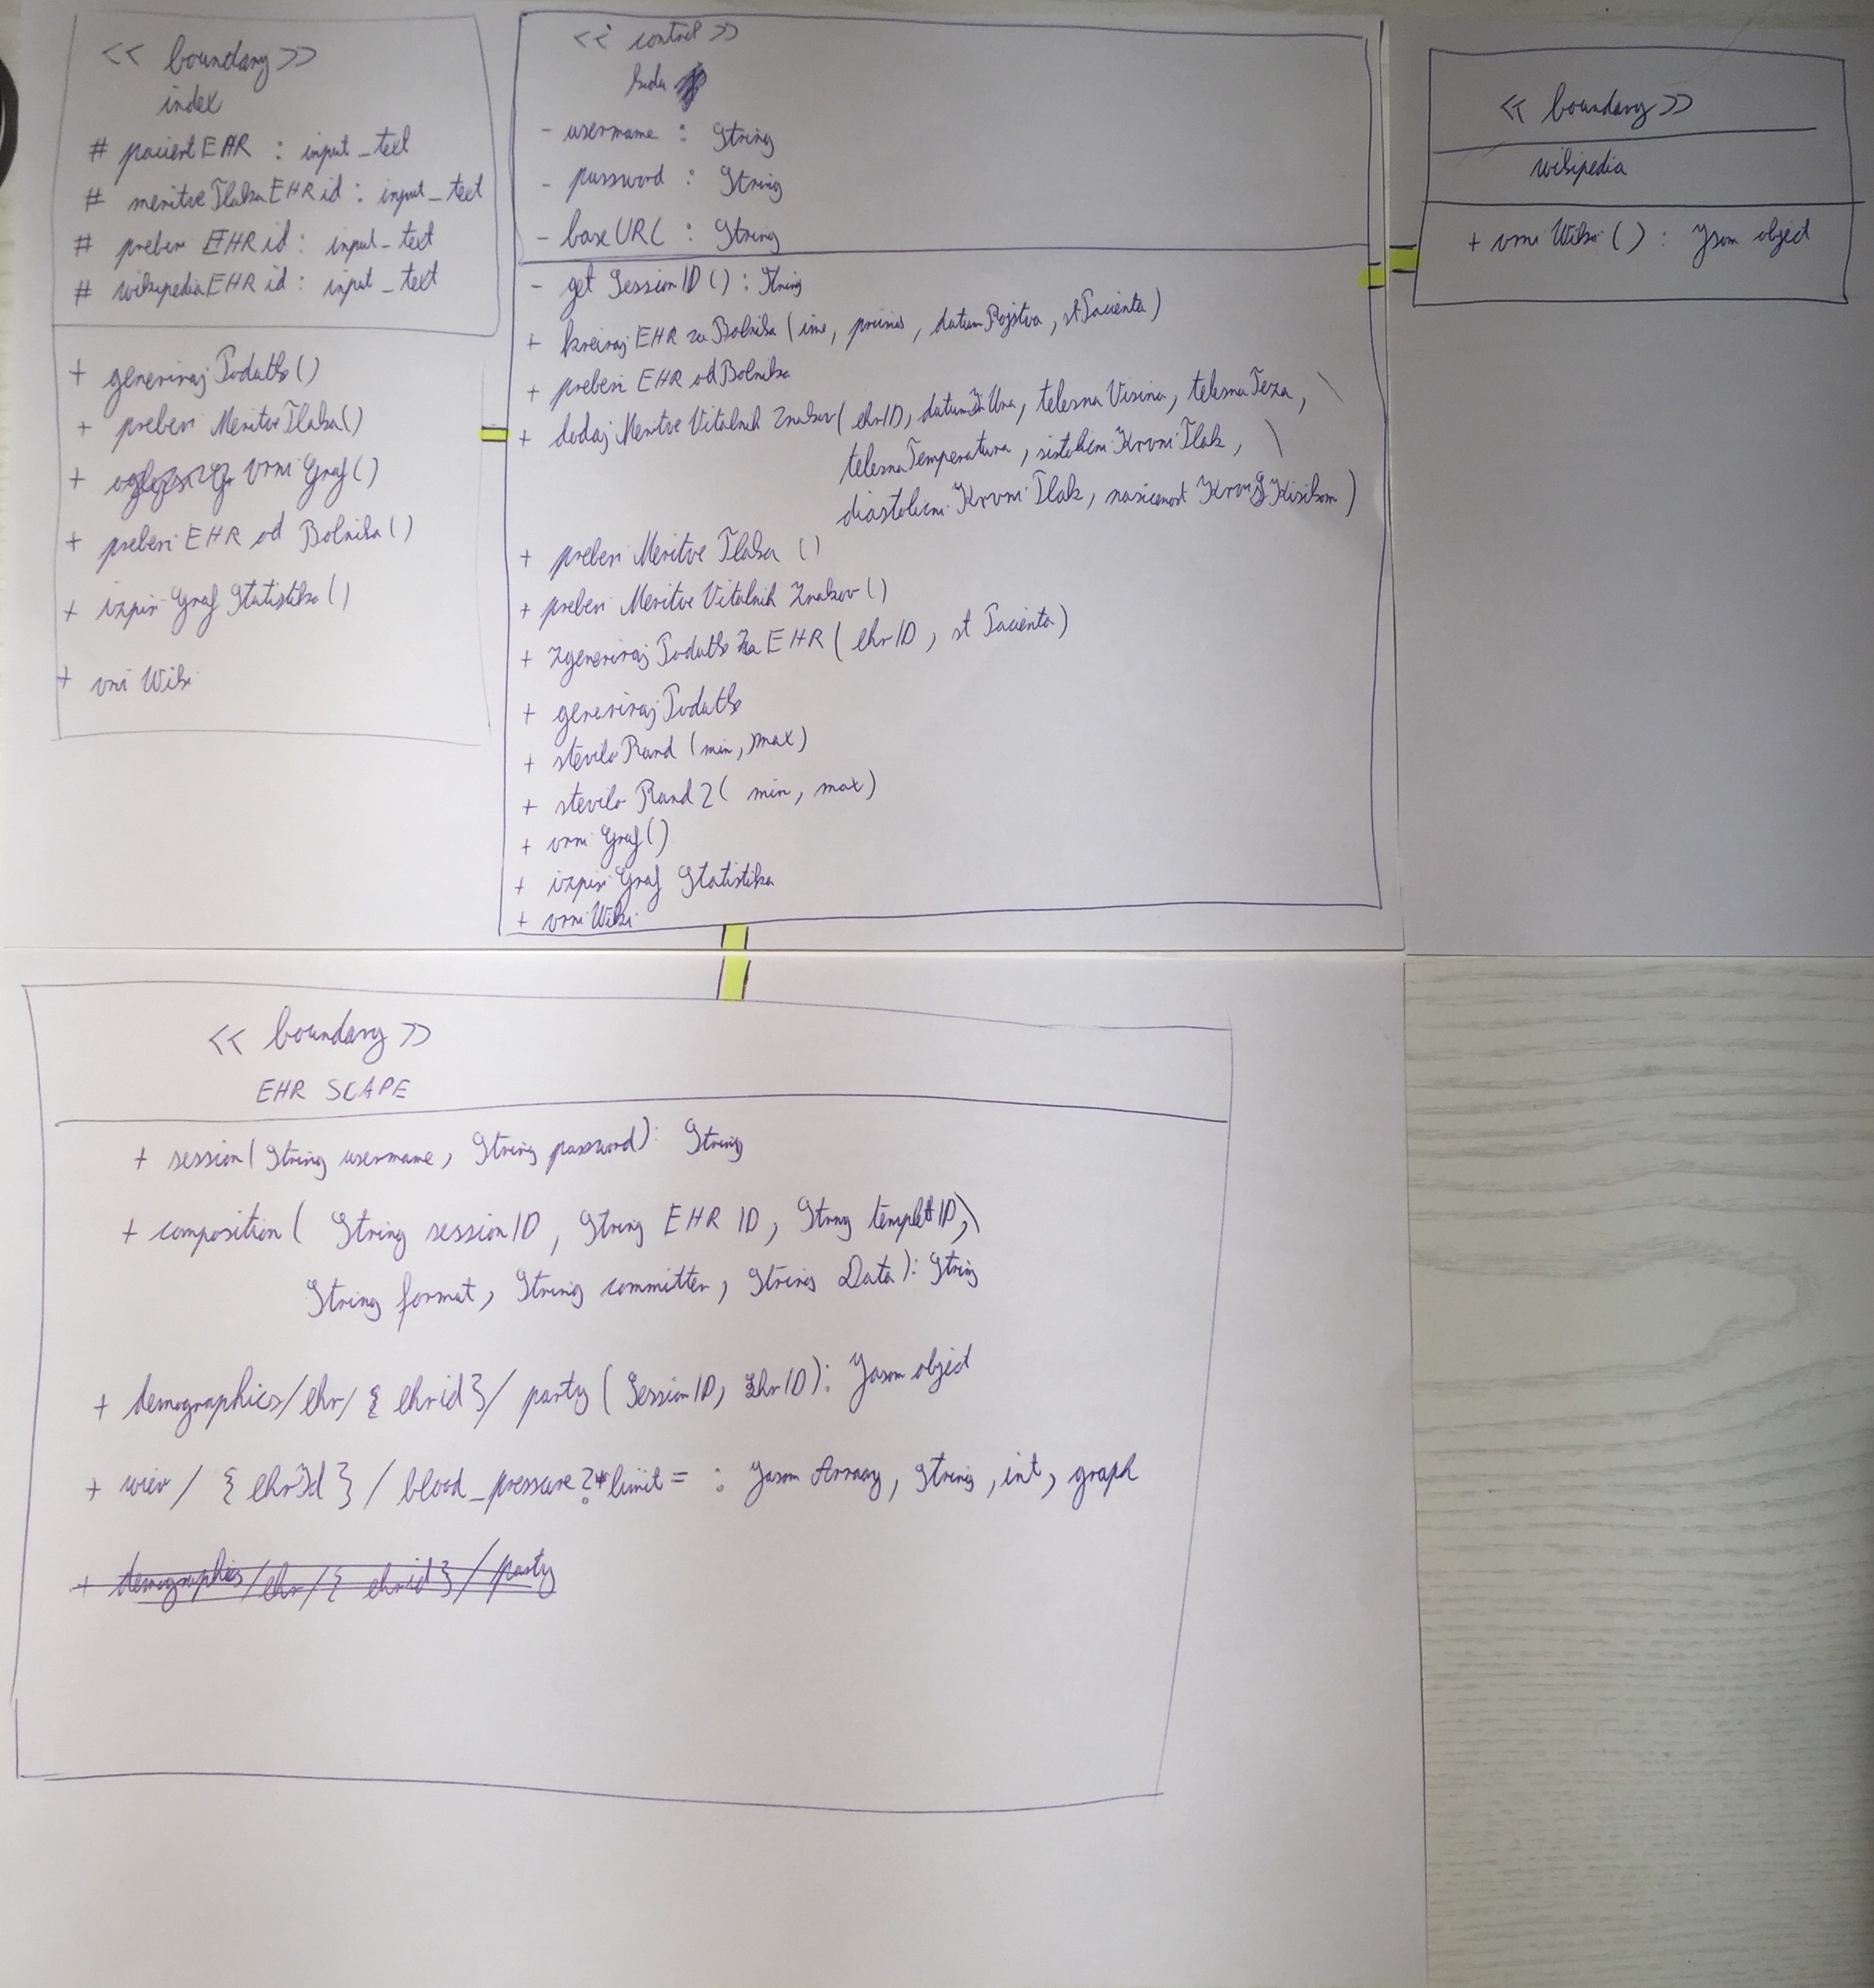 << boundary >>
index
# pacientEHR : input_text
# meritveTlakaEHRid : input_text
# preberiEHRid : input_text
# wikipediaEHRid : input_text
+ generirajPodatke()
+ preberiMeritveTlaka()
+ vrniGraf()
+ preberiEHRodBolnika()
+ izpisiGrafStatistika()
+ vrniWiki
<< control >>
koda
- username : String
- password : String
- baseURL : String
- getSessionID() : String
+ kreirajEHRzaBolnika(ime, priimek, datumRojstva, stPacienta)
+ preberiEHRodBolnika
+ dodajMeritveVitalnihZnakov(ehrID, datumInUra, telesnaVisina, telesnaTeza, \
telesnaTemperatura, sistolicniKrvniTlak, \
diastolicniKrvniTlak, nasicenostKrviSKisikom)
+ preberiMeritveTlaka()
+ preberiMeritveVitalnihZnakov()
+ zgenerirajPodatkeZaEHR(ehrID, stPacienta)
+ generirajPodatke
+ steviloRand(min, max)
+ steviloRand2(min, max)
+ vrniGraf()
+ izpisiGrafStatistika
+ vrniWiki
<< boundary >>
wikipedia
+ vrniWiki() : Json object
<< boundary >>
EHR SCAPE
+ session(String username, String password): String
+ composition( String sessionID, String EHR ID, String templetID,\
String format, String committer, String Data): String
+ demographics/ehr/{ehrid}/party(SessionID, EhrID): Jason object
+ wiev/{ehrId}/blood_pressure?+limit= : Jason Array, String, int, graph
+ demographics/ehr/{ehrid}/party